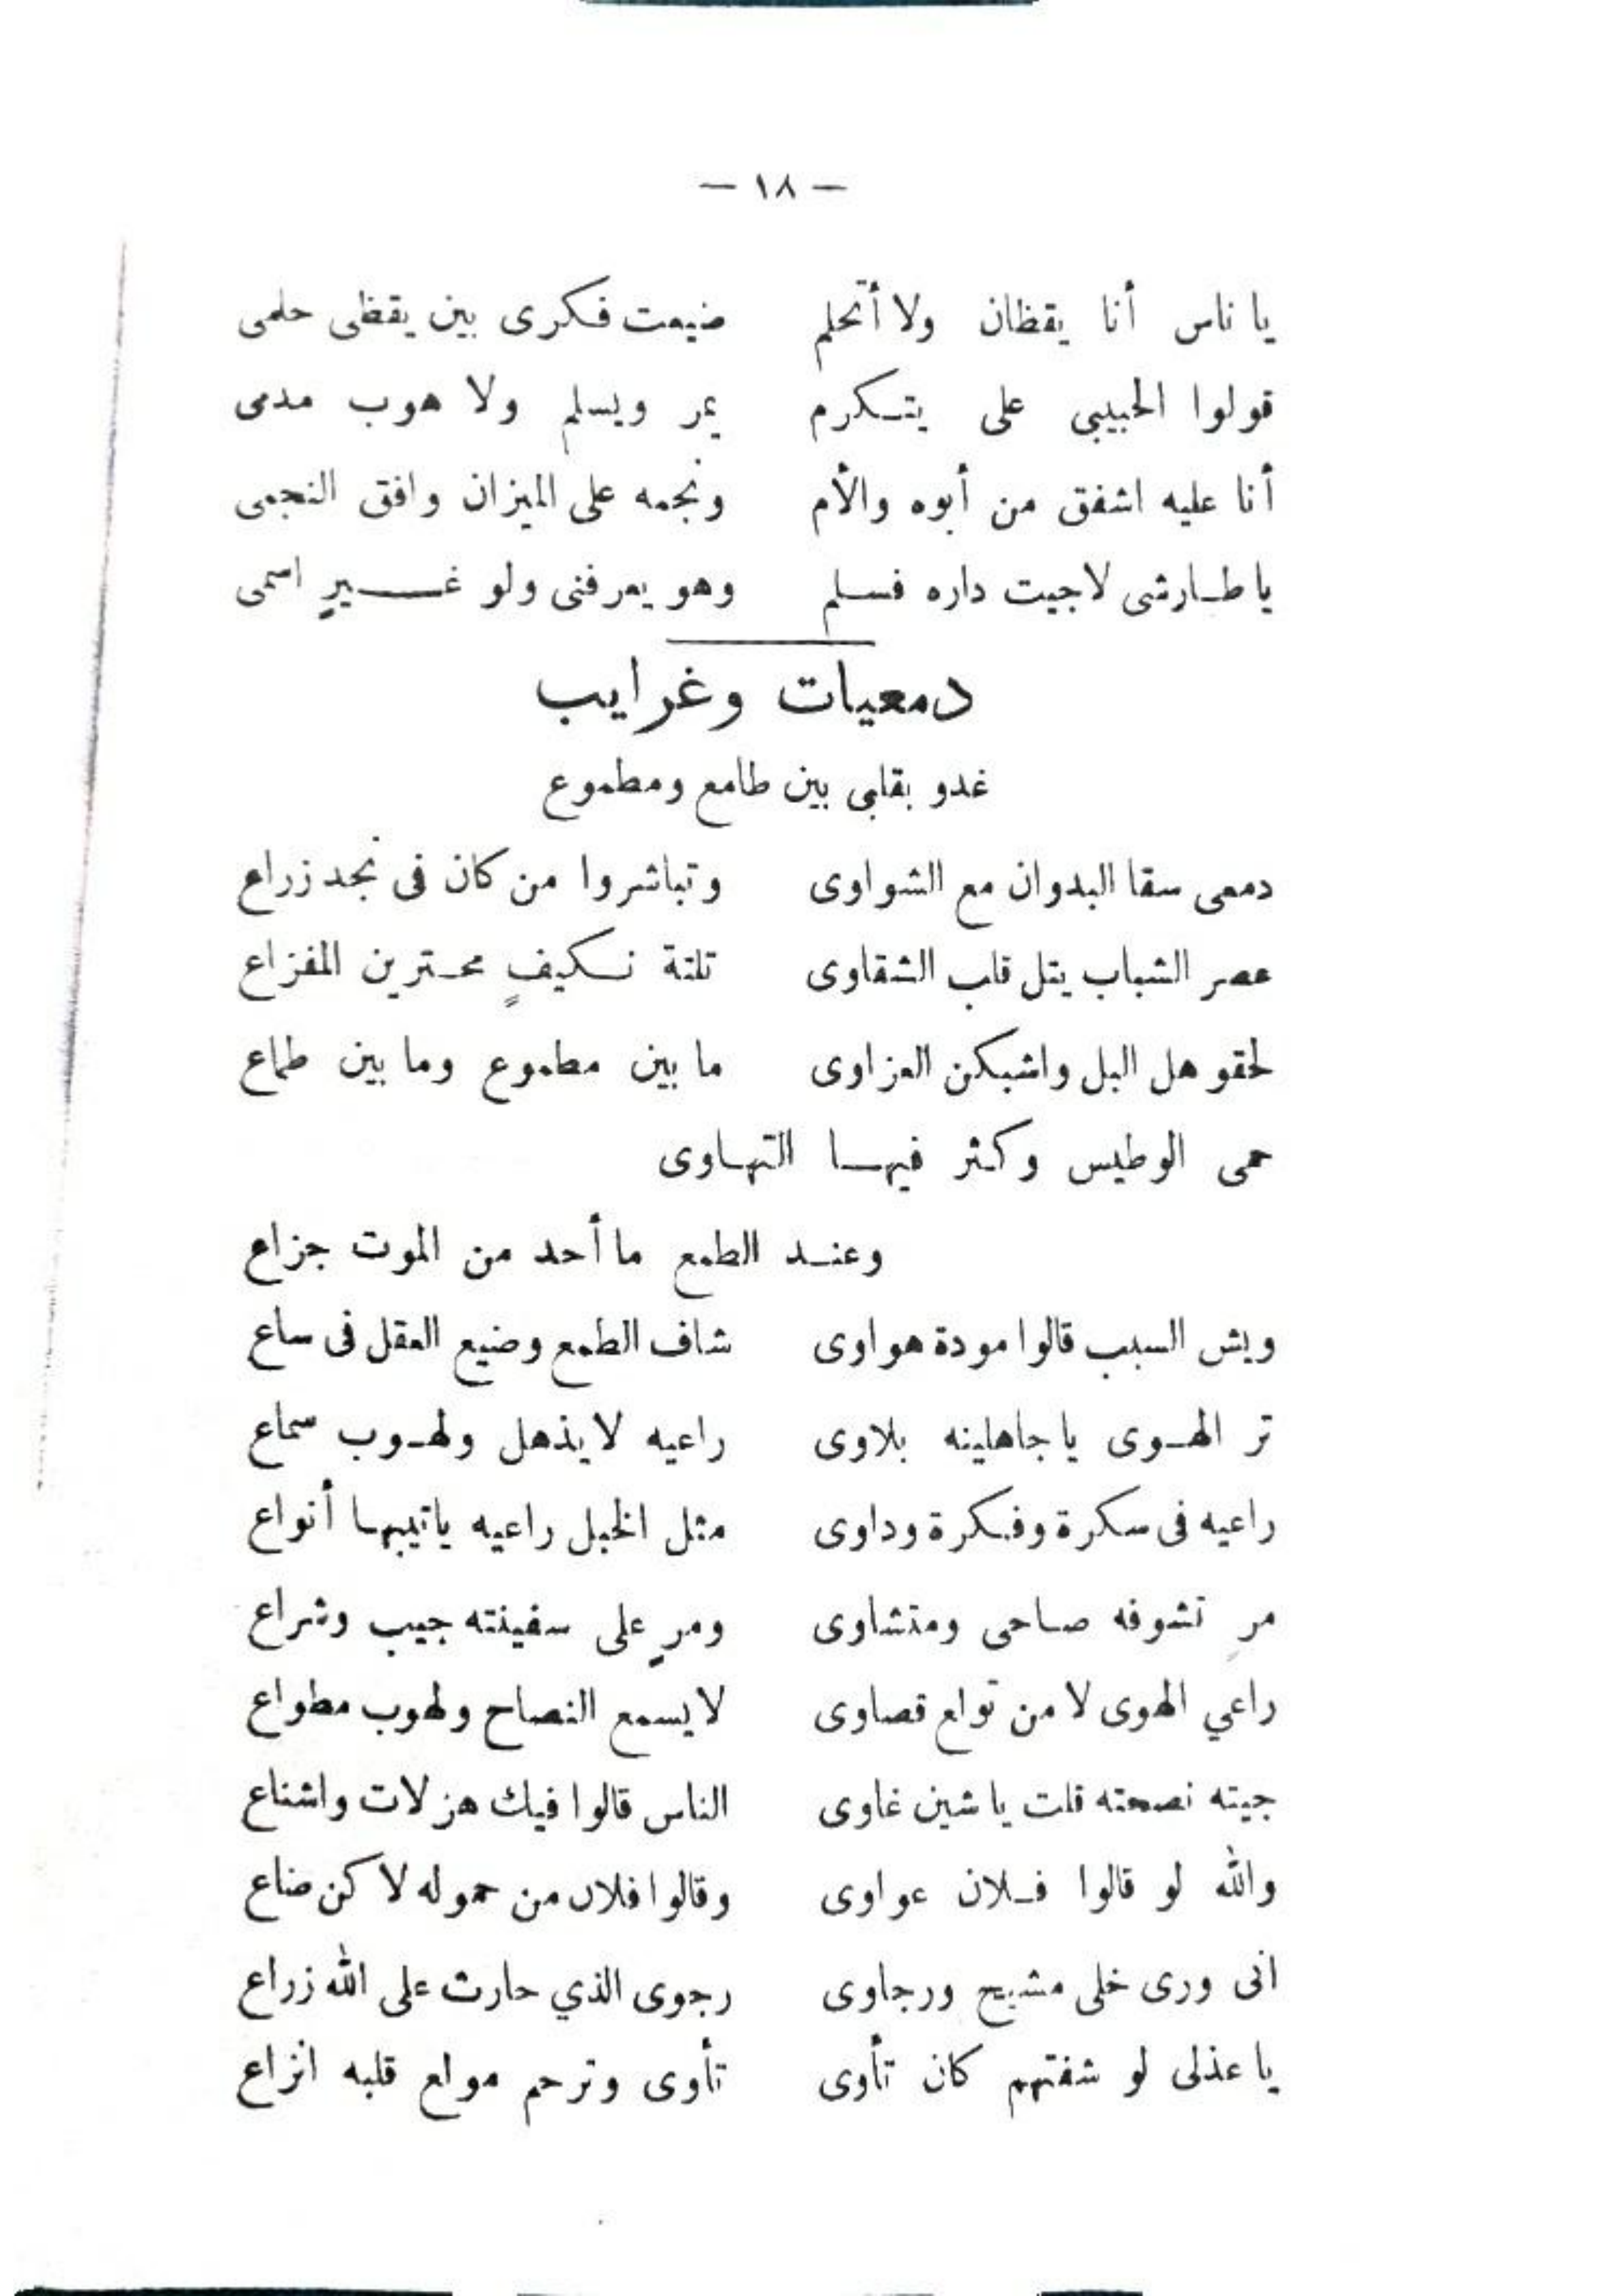 — ١٨ —
يا ناس أنا يقظان ولا أتحلم ضيعت فكرى بين يقظى حلمى
قولوا الحبيبى على يتكرم يمر ويسلم ولا هوب مدمى
أنا عليه اشفق من أبوه والأم ونجمه على الميزان وافق النجمى
يا طارشى لاجيت داره فسلم وهو يعرفنى ولو غيرٍ اسمى
دمعيات وغرايب
غدو بقلبى بين طامع ومطموع
دمعى سقا البدوان مع الشواوى وتباشروا من كان فى نجد زراع
عصر الشباب يتل قلب الشقاوى تلتة نكيفٍ محترين المفزاع
لحقو هل البل واشبكن العزاوى ما بين مطموع وما بين طماع
حمى الوطيس وكثر فيها التهاوى
وعند الطمع ما أحد من الموت جزاع
ويش السبب قالوا مودة هواوى شاف الطمع وضيع العقل فى ساع
تر الهوى يا جاهلينه بلاوى راعيه لا يذهل ولهوب سماع
راعيه فى سكرة وفكرة وداوى مثل الخبل راعيه ياتيبها أنواع
مرٍ تشوفه صاحى ومتشاوى ومرٍ على سفينته جيب وشراع
راعي الهوى لا من تولع قصاوى لا يسمع النصاح ولهوب مطواع
جيته نصحته قلت يا شين غاوى الناس قالوا فيك هزلات واشناع
والله لو قالوا فلان عواوى وقالوا فلان من حموله لاكن ضاع
انى ورى خلى مشيح ورجاوى رجوى الذي حارث على الله زراع
يا عذلى لو شفتهم كان تأوى تأوى وترحم مولع قلبه انزاع